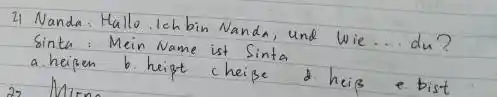 21 Nanda : Hallo. Ich bin Nanda, und wie ... du?
Sinta : Mein Name ist Sinta
a. heißen b. heißt c heiße d. heiß e. bist
22